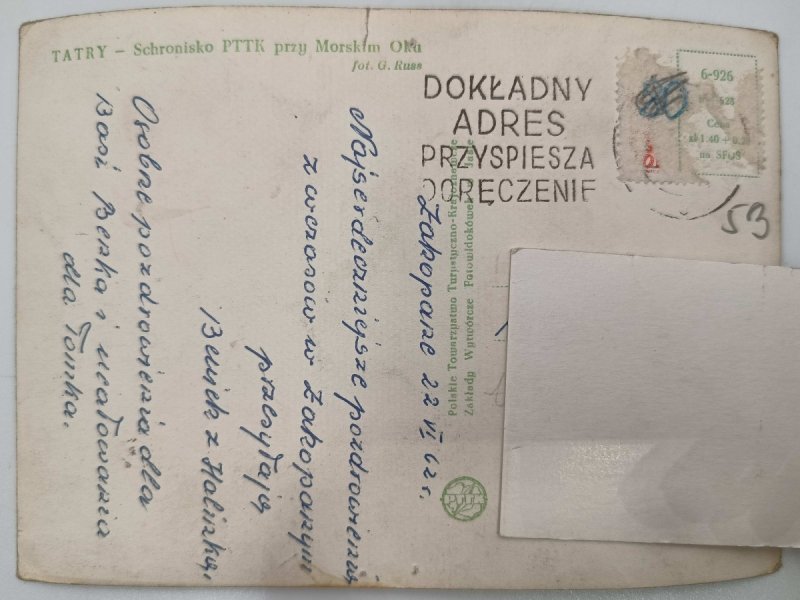 TATRY – Schronisko PTTK przy Morskim Oku
fot. G. Russ
DOKŁADNY
ADRES
PRZYSPIESZA
DORĘCZENIE
6-926
628
Cena
zł 1.40 + 0.20
na SFOS
53
Polskie Towarzystwo Turystyczno-Krajoznawcze
Zakłady Wytwórcze Fotowidokówek
Zakopane 22 VI 62 r.
Najserdeczniejsze pozdrowienia
z wczasów w Zakopanym
przesyłają
Beniek z Halinką,
Osobne pozdrowienia dla
Basi Benka i ucałowania
dla Tomka.
PTTK